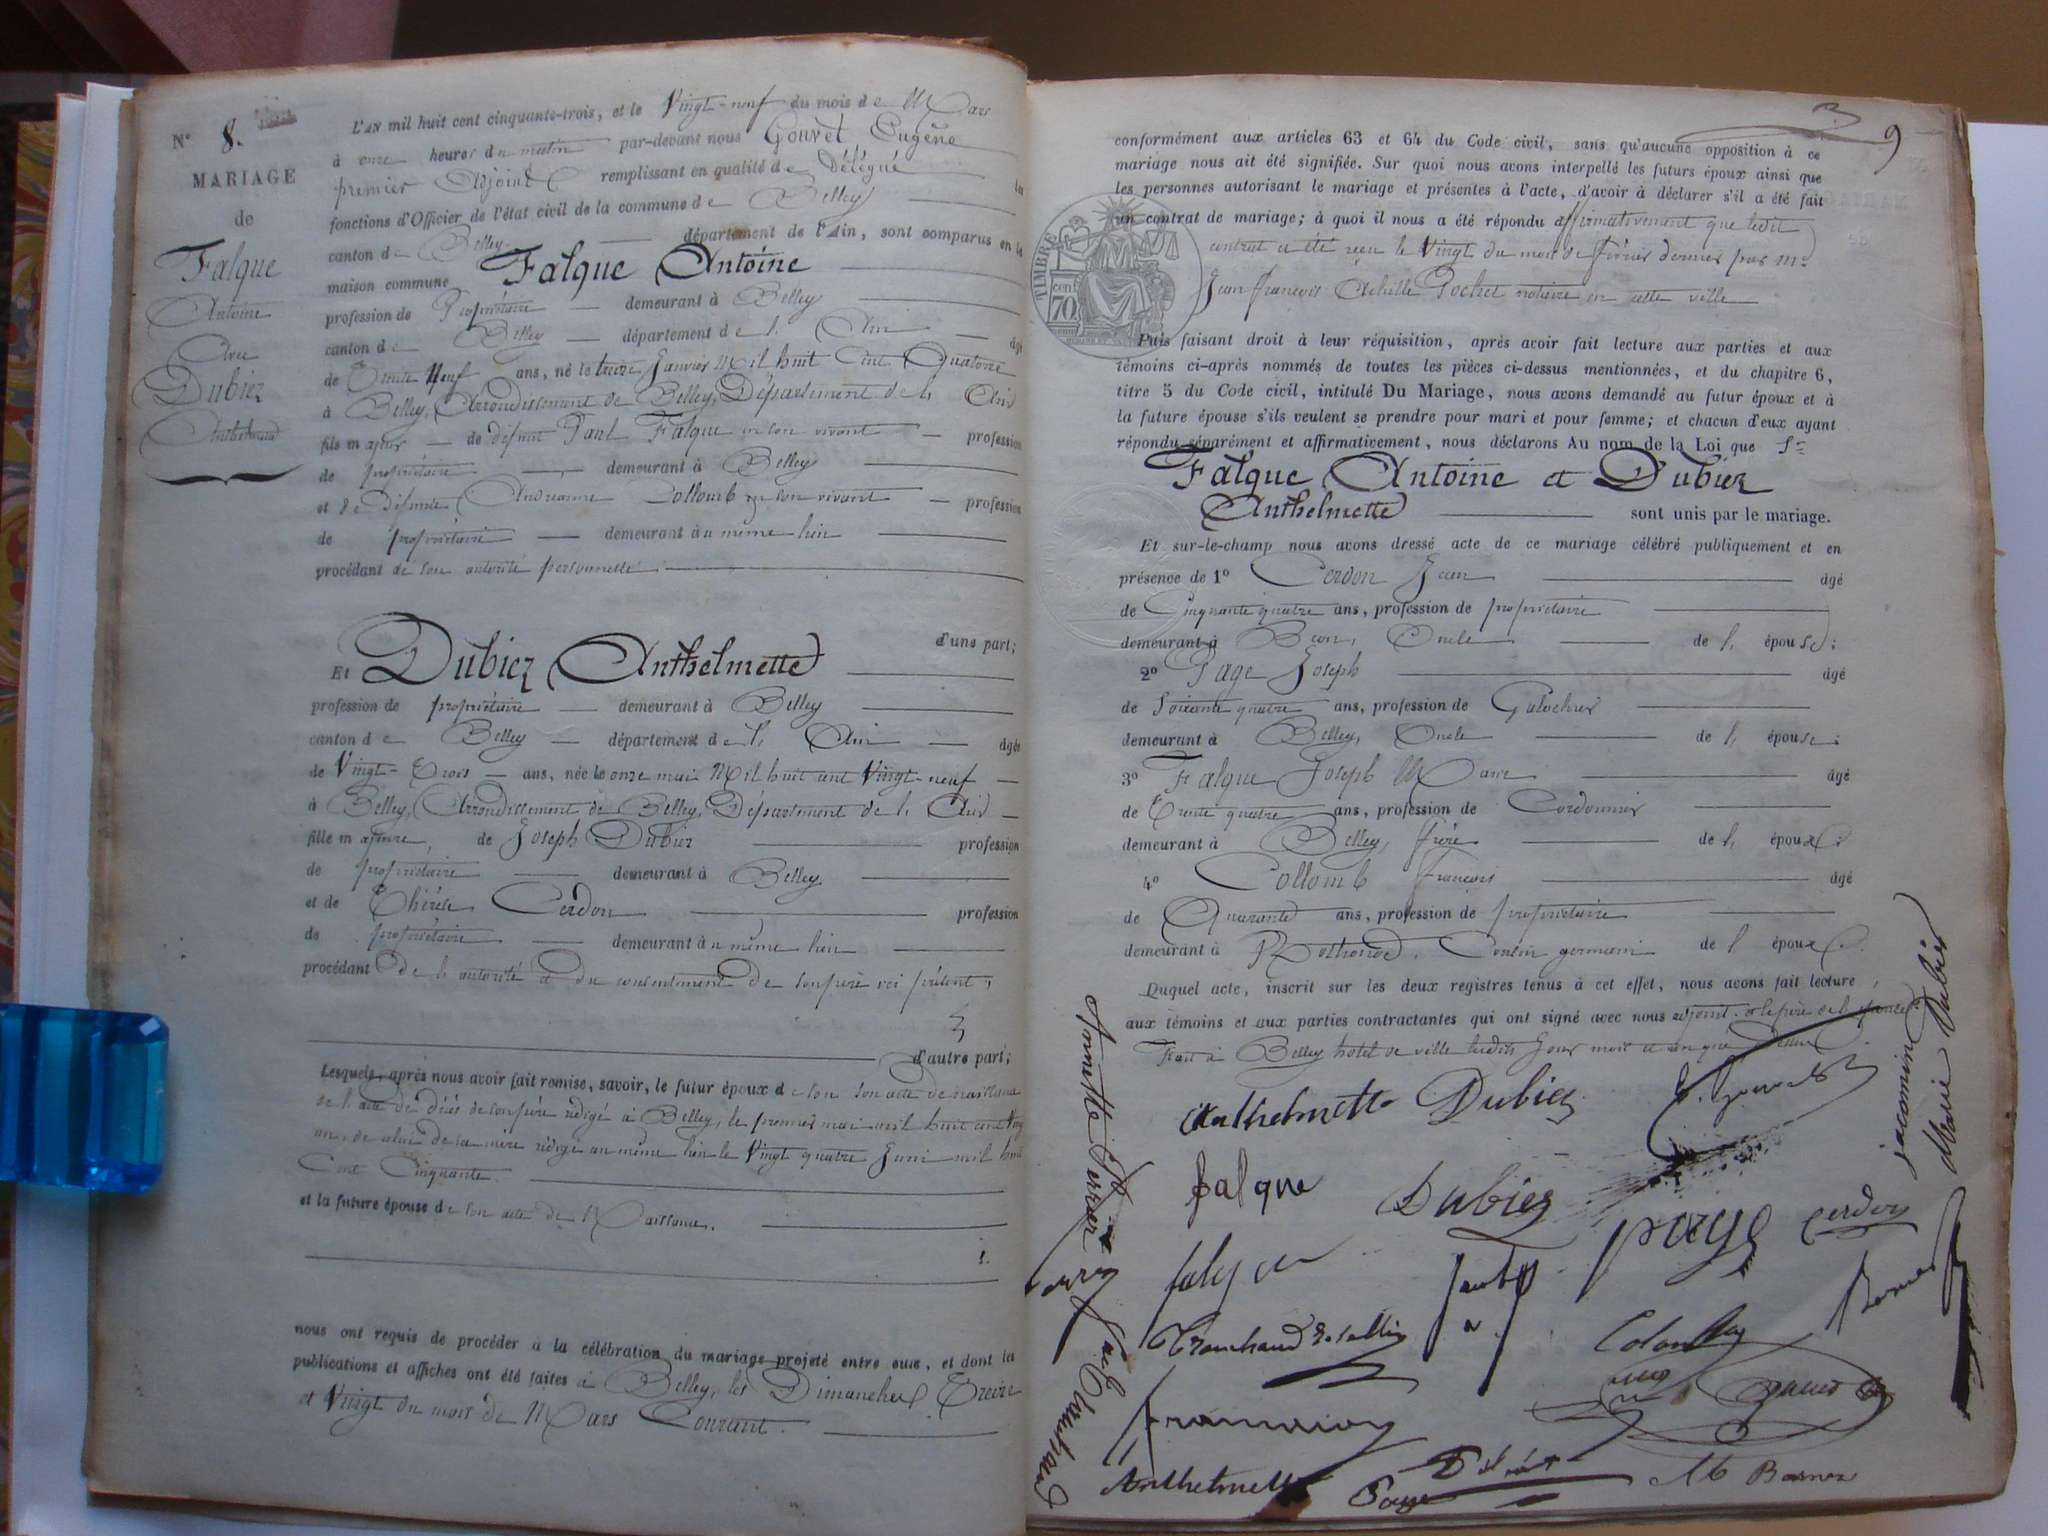 N° 8.
MARIAGE
de
Falque
Antoine
Avec
Dubiez
Anthelmette
L'AN mil huit cent cinquante-trois, et le Vingt-neuf du mois de Mars
à onze heures du matin par-devant nous Gouvet Eugène
premier Adjoint remplissant en qualité de Délégué les
fonctions d'Officier de l'état civil de la commune de Belley
canton de Belley département de l'Ain, sont comparus en la
maison commune Falque Antoine
profession de Propriétaire demeurant à Belley
canton de Belley département de l' Ain âgé
de Trente Neuf ans, né le treize Janvier Mil huit Cent Quatorze
à Belley, Arrondissement de Belley, Département de l' Ain
fils majeur de défunt Paul Falque en son vivant profession
de propriétaire demeurant à Belley
et de Défunte Andréanne Collomb en son vivant profession
de propriétaire demeurant au même lieu
procédant de son autorité personnelle
d'une part;
Et Dubiez Anthelmette
profession de propriétaire demeurant à Belley
canton de Belley département de l' Ain âgée
de Vingt-Trois ans, née le onze mai Mil huit cent Vingt-neuf
à Belley, Arrondissement de Belley, Département de l' Ain
fille majeure, de Joseph Dubiez profession
de propriétaire demeurant à Belley
et de Thérèse Cerdon profession
de propriétaire demeurant au même lieu
procédant de l'autorité et du consentement de son père ici présent;
d'autre part;
Lesquels, après nous avoir fait remise, savoir, le futur époux de son acte de naissance
de l'acte de décès de son père rédigé à Belley, le premier mai mil huit cent
de celui de sa mère rédigé au même lieu le Vingt quatre Juin mil huit
Cent Cinquante.
et la future épouse de son acte de Naissance.
nous ont requis de procéder à la célébration du mariage projeté entre eux, et dont les
publications et affiches ont été faites à Belley, les Dimanches Treize
et Vingt du mois de Mars Courant.
9
conformément aux articles 63 et 64 du Code civil, sans qu'aucune opposition à ce
mariage nous ait été signifiée. Sur quoi nous avons interpellé les futurs époux ainsi que
les personnes autorisant le mariage et présentes à l'acte, d'avoir à déclarer s'il a été fait
un contrat de mariage; à quoi il nous a été répondu affirmativement que ledit
contrat a été reçu le Vingt du mois de février dernier par Me
Jean françois Achille Pochet notaire en cette ville
TIMBRE
70 cent
Puis faisant droit à leur réquisition, après avoir fait lecture aux parties et aux
témoins ci-après nommés de toutes les pièces ci-dessus mentionnées, et du chapitre 6,
titre 5 du Code civil, intitulé Du Mariage, nous avons demandé au futur époux et à
la future épouse s'ils veulent se prendre pour mari et pour femme; et chacun d'eux ayant
répondu séparément et affirmativement, nous déclarons Au nom de la Loi que Sr
Falque Antoine et Dubiez
Anthelmette sont unis par le mariage.
Et sur-le-champ nous avons dressé acte de ce mariage célébré publiquement et en
présence de 1° Cerdon Jean âgé
de Cinquante quatre ans, profession de propriétaire
demeurant à Béon, Oncle de l' épouse;
2° Page Joseph âgé
de Soixante quatre ans, profession de Galochier
demeurant à Belley, Oncle de l' épouse;
3° Falque Joseph Marie âgé
de Trente quatre ans, profession de Cordonnier
demeurant à Belley frère de l' époux;
4° Collomb François âgé
de Quarante ans, profession de propriétaire
demeurant à Rothonod, Cousin germain de l' époux.
Duquel acte, inscrit sur les deux registres tenus à cet effet, nous avons fait lecture
aux témoins et aux parties contractantes qui ont signé avec nous adjoint et le père de l'épouse
Fait à Belley hotel de ville lesdits Jour mois et an que Dessus
Anthelmette Dubiez
falque Dubiez page cerdon
jacomin
Marie Dubiez
Anthelmette